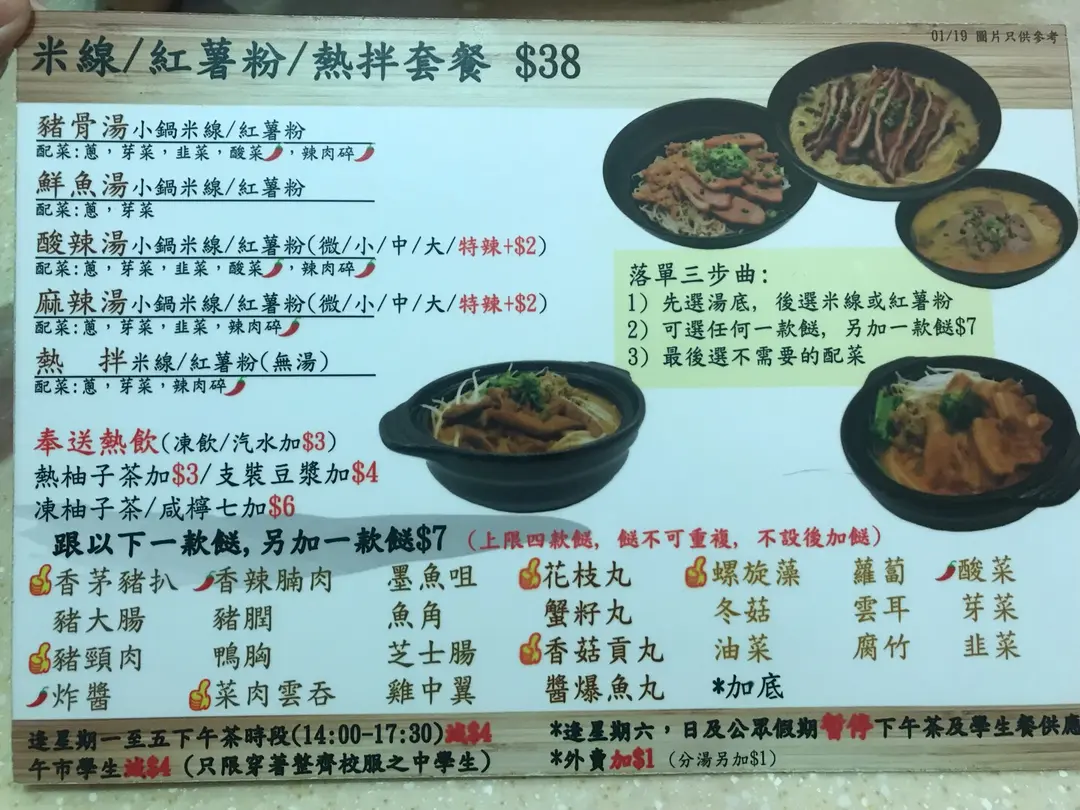 01/19 圖片只供參考
米線/紅薯粉/熱拌套餐 $38
豬骨湯小鍋米線/紅薯粉
配菜:蔥，芽菜，韭菜，酸菜，辣肉碎
鮮魚湯小鍋米線/紅薯粉
配菜:蔥，芽菜
酸辣湯小鍋米線/紅薯粉(微/小/中/大/特辣+$2)
配菜:蔥，芽菜，韭菜，酸菜，辣肉碎
麻辣湯小鍋米線/紅薯粉(微/小/中/大/特辣+$2)
配菜:蔥，芽菜，韭菜，辣肉碎
熱 拌米線/紅薯粉(無湯)
配菜:蔥，芽菜，辣肉碎
落單三步曲:
1) 先選湯底, 後選米線或紅薯粉
2) 可選任何一款餸, 另加一款餸$7
3) 最後選不需要的配菜
奉送熱飲(凍飲/汽水加$3)
熱柚子茶加$3/支裝豆漿加$4
凍柚子茶/咸檸七加$6
跟以下一款餸,另加一款餸$7 (上限四款餸, 餸不可重複, 不設後加餸)
香茅豬扒 香辣腩肉 墨魚咀 花枝丸 螺旋藻 蘿蔔 酸菜
豬大腸 豬膶 魚角 蟹籽丸 冬菇 雲耳 芽菜
豬頸肉 鴨胸 芝士腸 香菇貢丸 油菜 腐竹 韭菜
炸醬 菜肉雲吞 雞中翼 醬爆魚丸 *加底
逢星期一至五下午茶時段(14:00-17:30)減$4
午市學生減$4 (只限穿著整齊校服之中學生)
*逢星期六，日及公眾假期暫停下午茶及學生餐供應
*外賣加$1 (分湯另加$1)